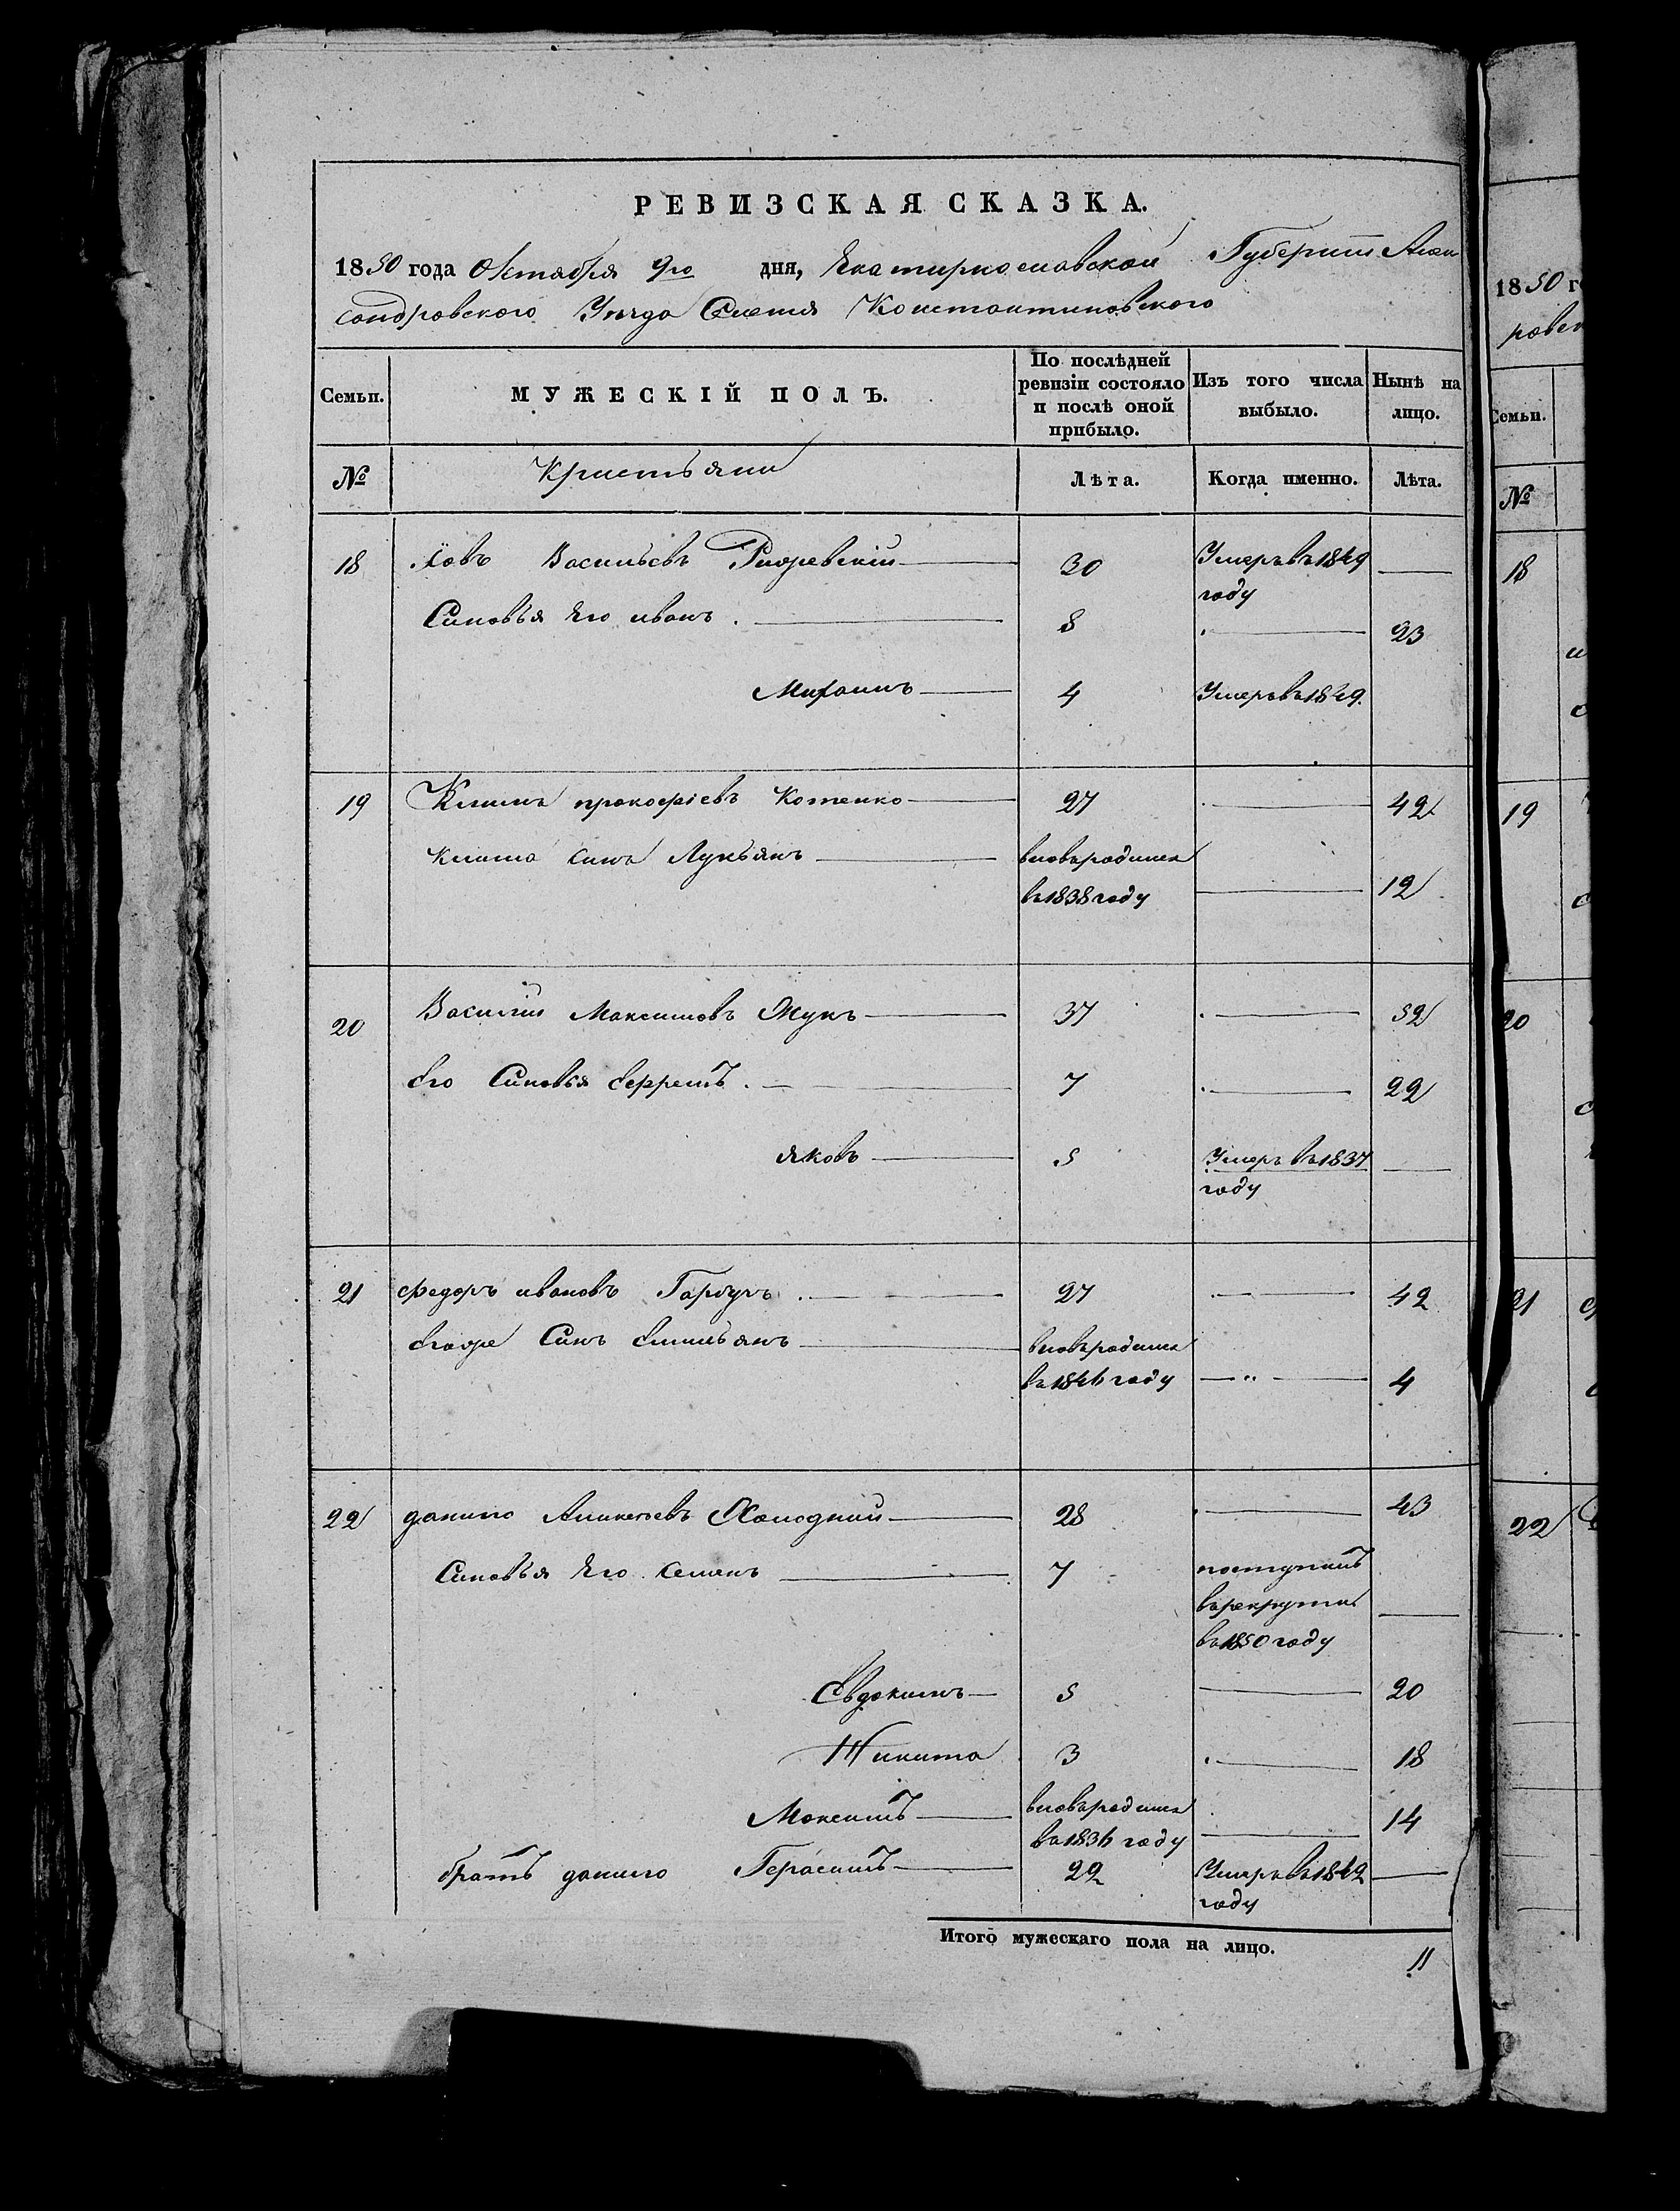 РЕВИЗСКАЯ СКАЗКА.
1850 года Октября 9го дня, Екатиринославской Губернии Алек
сандровского Уезда Селения Константиновского
Семьи. МУЖЕСКІЙ ПОЛЪ. По послѣдней ревизіи состояло и послѣ оной прибыло. Изъ того числа выбыло. Нынѣ на лицо.
№ Кристьяни Лѣта. Когда именно. Лѣта.
18 Іовъ Васильевъ 30 Умеръ въ 1849 —
году
Синовья Его иванъ 8 — 23
Михаилъ 4 Умеръ въ 1849.
19 Климъ прокофіевъ Котенко 27 — 42
Клима Синъ Лукъянъ вновь родился
въ 1838 году — 12
20 Василій Максимовъ Жукъ 37 — 52
Его Синовья Ефремъ 7 — 22
яковъ 5 Умеръ въ 1837 —
году
21 Федоръ ивановъ Гарбузъ 27 — 42
Егоже Синъ Емильянъ вновь родился
въ 1846 году — 4
22 данило Холодний 28 — 43
Синовья Его Семенъ 7 поступилъ
въ рекруты —
въ 1850 году
Евдокимъ 5 — 20
Никита 3 — 18
Максимъ вновь родился — 14
въ 1836 году
братъ данило Герасимъ 22 Умеръ въ 1842 —
году
Итого мужескаго пола на лицо. 11
1850 г
ровск
Семьи.
№
18
19
20
21
22